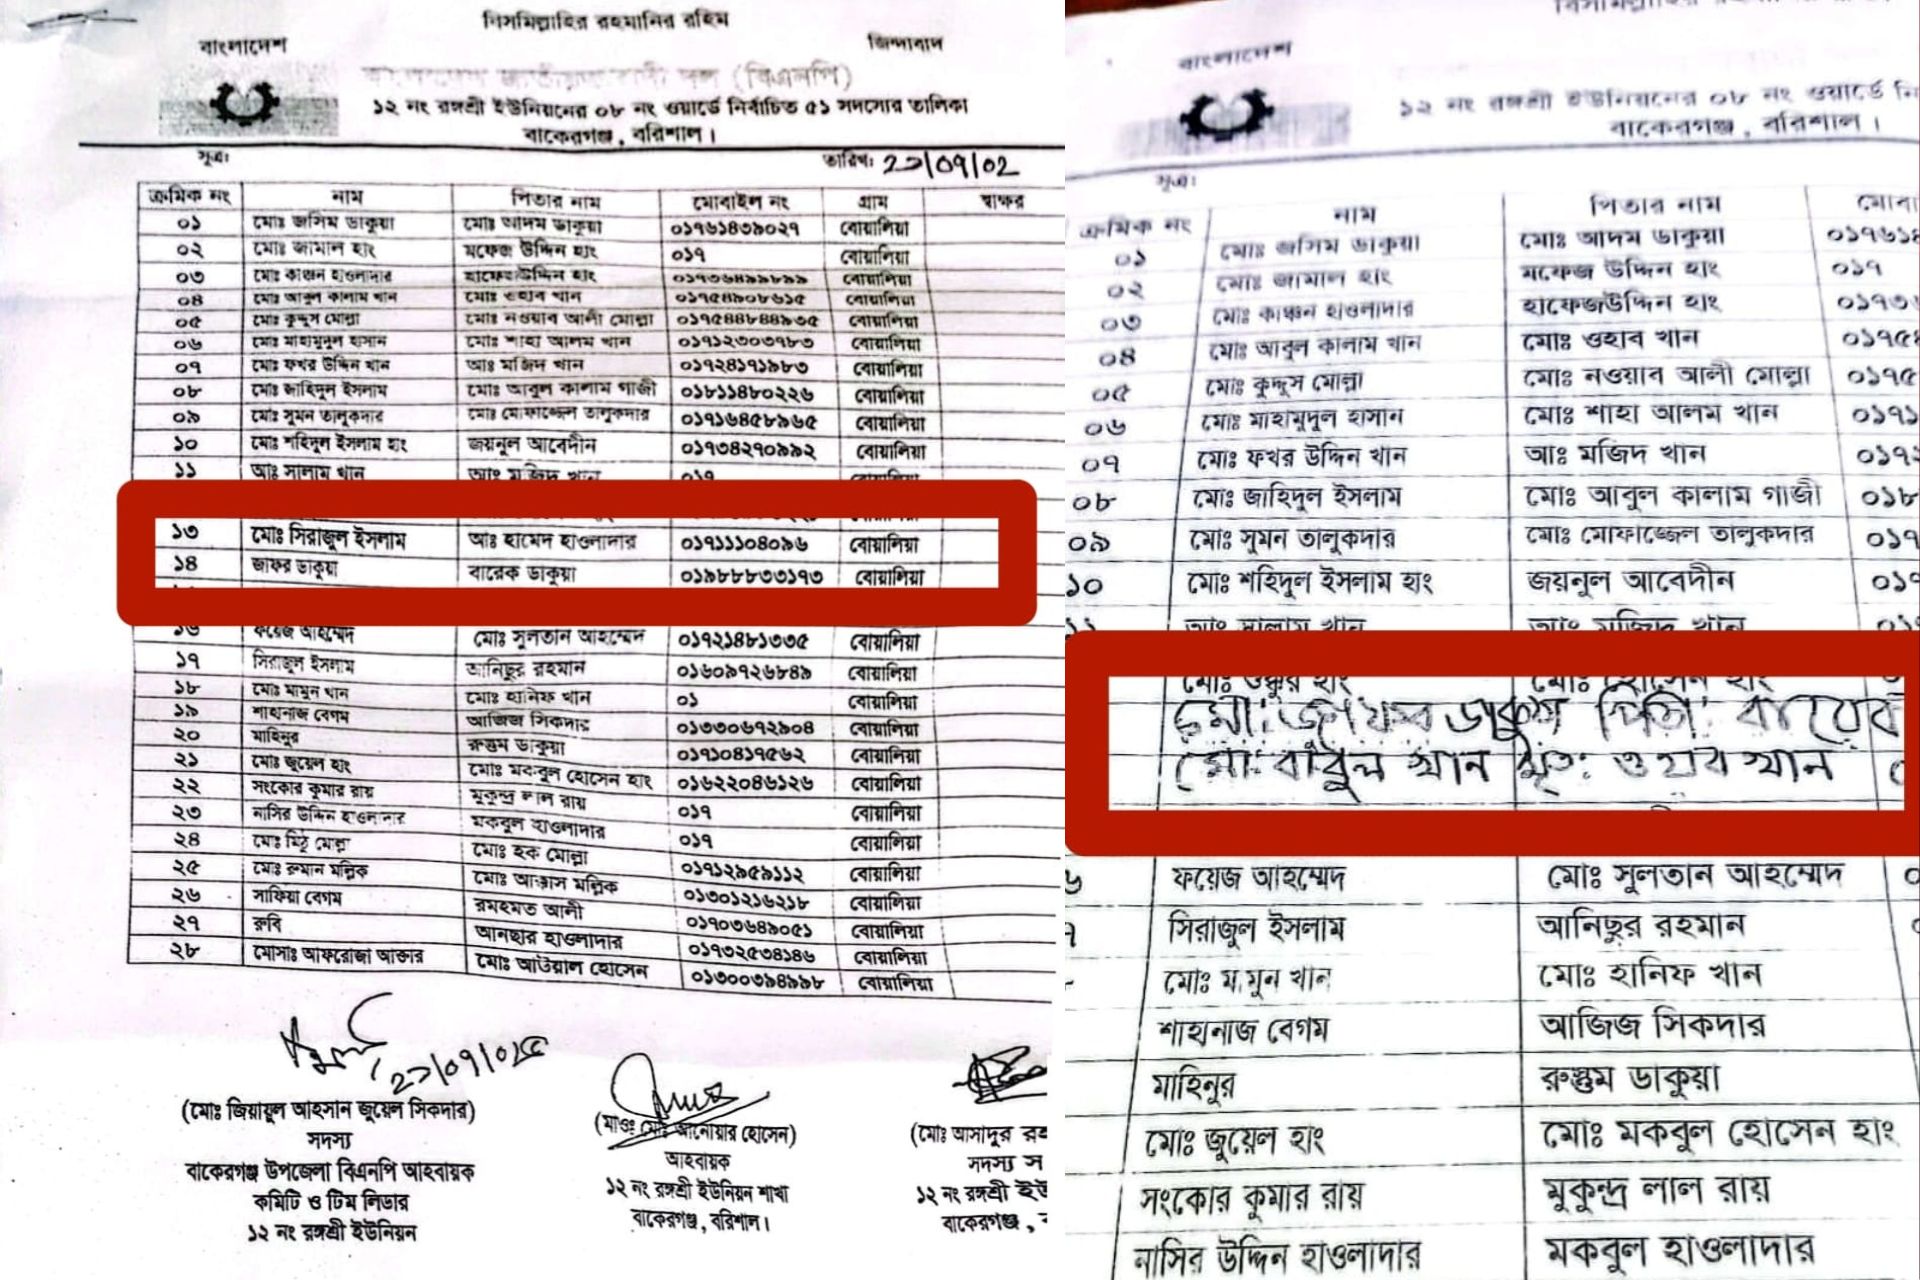 বিসমিল্লাহির রহমানির রহিম
বাংলাদেশ জিন্দাবাদ
বাংলাদেশ জাতীয়তাবাদী দল (বিএনপি)
১২ নং রঙ্গশ্রী ইউনিয়নের ০৮ নং ওয়ার্ডে নির্বাচিত ৫১ সদস্যের তালিকা
বাকেরগঞ্জ, বরিশাল।
সূত্রঃ তারিখঃ
ক্রমিক নং নাম পিতার নাম মোবাইল নং গ্রাম স্বাক্ষর
০১ মোঃ জসিম ডাকুয়া মোঃ আদম ডাকুয়া ০১৭৬১৪৩৯০২৭ বোয়ালিয়া
০২ মোঃ জামাল হাং মফেজ উদ্দিন হাং ০১৭ বোয়ালিয়া
০৩ মোঃ কাঞ্চন হাওলাদার হাফেজউদ্দিন হাং ০১৭৩৬৪৯৯৮৯৯ বোয়ালিয়া
০৪ মোঃ আবুল কালাম খান মোঃ ওহাব খান ০১৭৫৪৯০৮৬১৫ বোয়ালিয়া
০৫ মোঃ কুদ্দুস মোল্লা মোঃ নওয়াব আলী মোল্লা ০১৭৫৪৪৮৪৪৯৩৫ বোয়ালিয়া
০৬ মোঃ মাহামুদুল হাসান মোঃ শাহা আলম খান ০১৭১২৩০৩৭৮৩ বোয়ালিয়া
০৭ মোঃ ফখর উদ্দিন খান আঃ মজিদ খান ০১৭২৪১৭১৯৮৩ বোয়ালিয়া
০৮ মোঃ জাহিদুল ইসলাম মোঃ আবুল কালাম গাজী ০১৮১১৪৮০২২৬ বোয়ালিয়া
০৯ মোঃ সুমন তালুকদার মোঃ মোফাজ্জেল তালুকদার ০১৭১৬৪৫৮৯৬৫ বোয়ালিয়া
১০ মোঃ শহিদুল ইসলাম হাং জয়নুল আবেদীন ০১৭৩৪২৭০৯৯২ বোয়ালিয়া
১১ আঃ সালাম খান আঃ মজিদ খান ০১৭ বোয়ালিয়া
১৩ মোঃ সিরাজুল ইসলাম আঃ হামেদ হাওলাদার ০১৭১১১০৪০৯৬ বোয়ালিয়া
১৪ জাফর ডাকুয়া বারেক ডাকুয়া ০১৯৮৮৮৩৩১৭৩ বোয়ালিয়া
১৬ ফয়েজ আহম্মেদ মোঃ সুলতান আহম্মেদ ০১৭২১৪৮১৩৩৫ বোয়ালিয়া
১৭ সিরাজুল ইসলাম আনিছুর রহমান ০১৬০৯৭২৬৮৪৯ বোয়ালিয়া
১৮ মোঃ মামুন খান মোঃ হানিফ খান ০১ বোয়ালিয়া
১৯ শাহানাজ বেগম আজিজ সিকদার ০১৩৩০৬৭২৯০৪ বোয়ালিয়া
২০ মাহিনুর রুস্তুম ডাকুয়া ০১৭১০৪১৭৫৬২ বোয়ালিয়া
২১ মোঃ জুয়েল হাং মোঃ মকবুল হোসেন হাং ০১৬২২০৪৬১২৬ বোয়ালিয়া
২২ সংকোর কুমার রায় মুকুন্দ্র লাল রায় ০১৭ বোয়ালিয়া
২৩ নাসির উদ্দিন হাওলাদার মকবুল হাওলাদার ০১৭ বোয়ালিয়া
২৪ মোঃ মিঠু মোল্লা মোঃ হক মোল্লা ০১৭১২৯৫৯১১২ বোয়ালিয়া
২৫ মোঃ রুমান মল্লিক মোঃ আক্কাস মল্লিক ০১৩০১২১৬২১৮ বোয়ালিয়া
২৬ সাফিয়া বেগম রমহমত আলী ০১৭০৩৬৪৯০৫১ বোয়ালিয়া
২৭ রুবি আনছার হাওলাদার ০১৭৩২৫৩৪১৪৬ বোয়ালিয়া
২৮ মোসাঃ আফরোজা আক্তার মোঃ আউয়াল হোসেন ০১৩০০৩৯৪৯৯৮ বোয়ালিয়া
(মোঃ জিয়ায়ুল আহসান জুয়েল সিকদার)
সদস্য
বাকেরগঞ্জ উপজেলা বিএনপি আহবায়ক
কমিটি ও টিম লিডার
১২ নং রঙ্গশ্রী ইউনিয়ন
(মাওঃ মোঃ আনোয়ার হোসেন)
আহবায়ক
১২ নং রঙ্গশ্রী ইউনিয়ন শাখা
বাকেরগঞ্জ, বরিশাল।
(মোঃ আসাদুর
সদস্য
১২ নং রঙ্গশ্রী
বাকেরগঞ্জ,
বাংলাদেশ
১২ নং রঙ্গশ্রী ইউনিয়নের ০৮ নং ওয়ার্ডে নি
বাকেরগঞ্জ, বরিশাল।
সূত্রঃ
ক্রমিক নং নাম পিতার নাম মোবা
০১ মোঃ জসিম ডাকুয়া মোঃ আদম ডাকুয়া ০১৭৬১৪
০২ মোঃ জামাল হাং মফেজ উদ্দিন হাং ০১৭
০৩ মোঃ কাঞ্চন হাওলাদার হাফেজউদ্দিন হাং ০১৭৩৬
০৪ মোঃ আবুল কালাম খান মোঃ ওহাব খান ০১৭৫৪
০৫ মোঃ কুদ্দুস মোল্লা মোঃ নওয়াব আলী মোল্লা ০১৭৫
০৬ মোঃ মাহামুদুল হাসান মোঃ শাহা আলম খান ০১৭১
০৭ মোঃ ফখর উদ্দিন খান আঃ মজিদ খান ০১৭২
০৮ মোঃ জাহিদুল ইসলাম মোঃ আবুল কালাম গাজী ০১৮
০৯ মোঃ সুমন তালুকদার মোঃ মোফাজ্জেল তালুকদার ০১৭
১০ মোঃ শহিদুল ইসলাম হাং জয়নুল আবেদীন ০১৭
১১ আঃ সালাম খান আঃ মজিদ খান ০১
মোঃ শুক্কুর হাং মোঃ হোসেন হাং
মো: জাফর ডাকুয়া পিতা: বারেক
মো: বাবুল খান মৃত: ওহাব খান
৬ ফয়েজ আহম্মেদ মোঃ সুলতান আহম্মেদ
৭ সিরাজুল ইসলাম আনিছুর রহমান
মোঃ মামুন খান মোঃ হানিফ খান
শাহানাজ বেগম আজিজ সিকদার
মাহিনুর রুস্তুম ডাকুয়া
মোঃ জুয়েল হাং মোঃ মকবুল হোসেন হাং
সংকোর কুমার রায় মুকুন্দ্র লাল রায়
নাসির উদ্দিন হাওলাদার মকবুল হাওলাদার